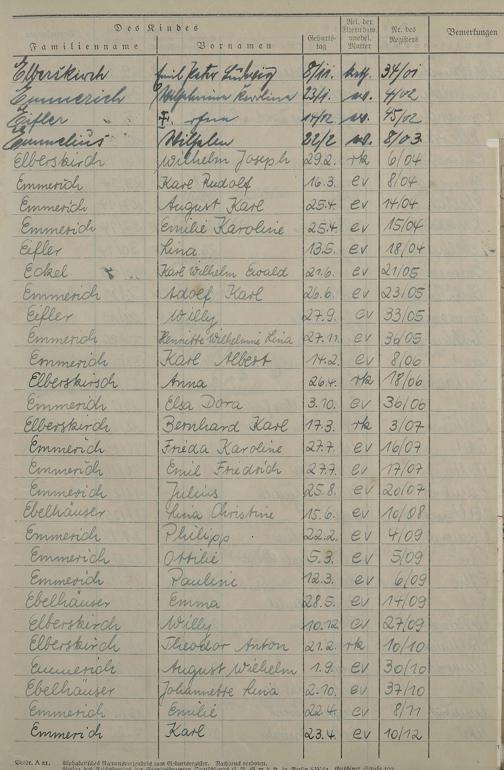 Des Kindes
Familienname Vornamen Geburts- tag Rel. der Eltern bzw. unehel. Mutter Nr. des Registers Bemerkungen
Elberskirch Emil Peter Ludwig 8/11. kath. 34/01
Emmerich Wilhelmine Karoline 23/1. ev. 4/02
Eifler 14/12 ev. 45/02
Emmelius 22/2 ev. 8/03
Elberskirch Wilhelm Joseph 29.2. rk 6/04
Emmerich Karl Rudolf 16.3. ev 8/04
Emmerich August Karl 25.4 ev 14/04
Emmerich Emilie Karoline 25.4 ev 15/04
Eifler Lina 13.5. ev 18/04
Eckel Karl Wilhelm Ewald 21.6. ev 21/05
Emmerich Adolf Karl 26.6. ev 23/05
Eifler Willy 27.9. ev 33/05
Emmerich Henriette Wilhelmine Lina 27.11. ev 36/05
Emmerich Karl Albert 14.2. ev 8/06
Elberskirsch Anna 26.4. rk 18/06
Emmerich Elsa Dora 3.10. ev 36/06
Elberskirch Bernhard Karl 17.3. rk 3/07
Emmerich Frieda Karoline 27.7. ev 16/07
Emmerich Emil Friedrich 27.7. ev 17/07
Emmerich Julius 25.8. ev 20/07
Ebelhäuser Lina Christine 15.6. ev 10/08
Emmerich Philipp 22.2. ev 4/09
Emmerich Ottilie 5.3. ev 5/09
Emmerich Pauline 12.3. ev 6/09
Ebelhäuser Emma 28.5. ev 14/09
Elberskirch Willy 10.12 ev 27/09
Elberskirch Theodor Anton 21.2. rk 10/10
Emmerich August Wilhelm 1.9. ev 30/10
Ebelhäuser Johannette Lina 2.10. ev 37/10
Emmerich Emilie 22.4. ev 8/11
Emmerich Karl 23.4. ev 10/12
Alphabetisches Namensverzeichnis zum Geburtsregister. Nachdruck verboten.